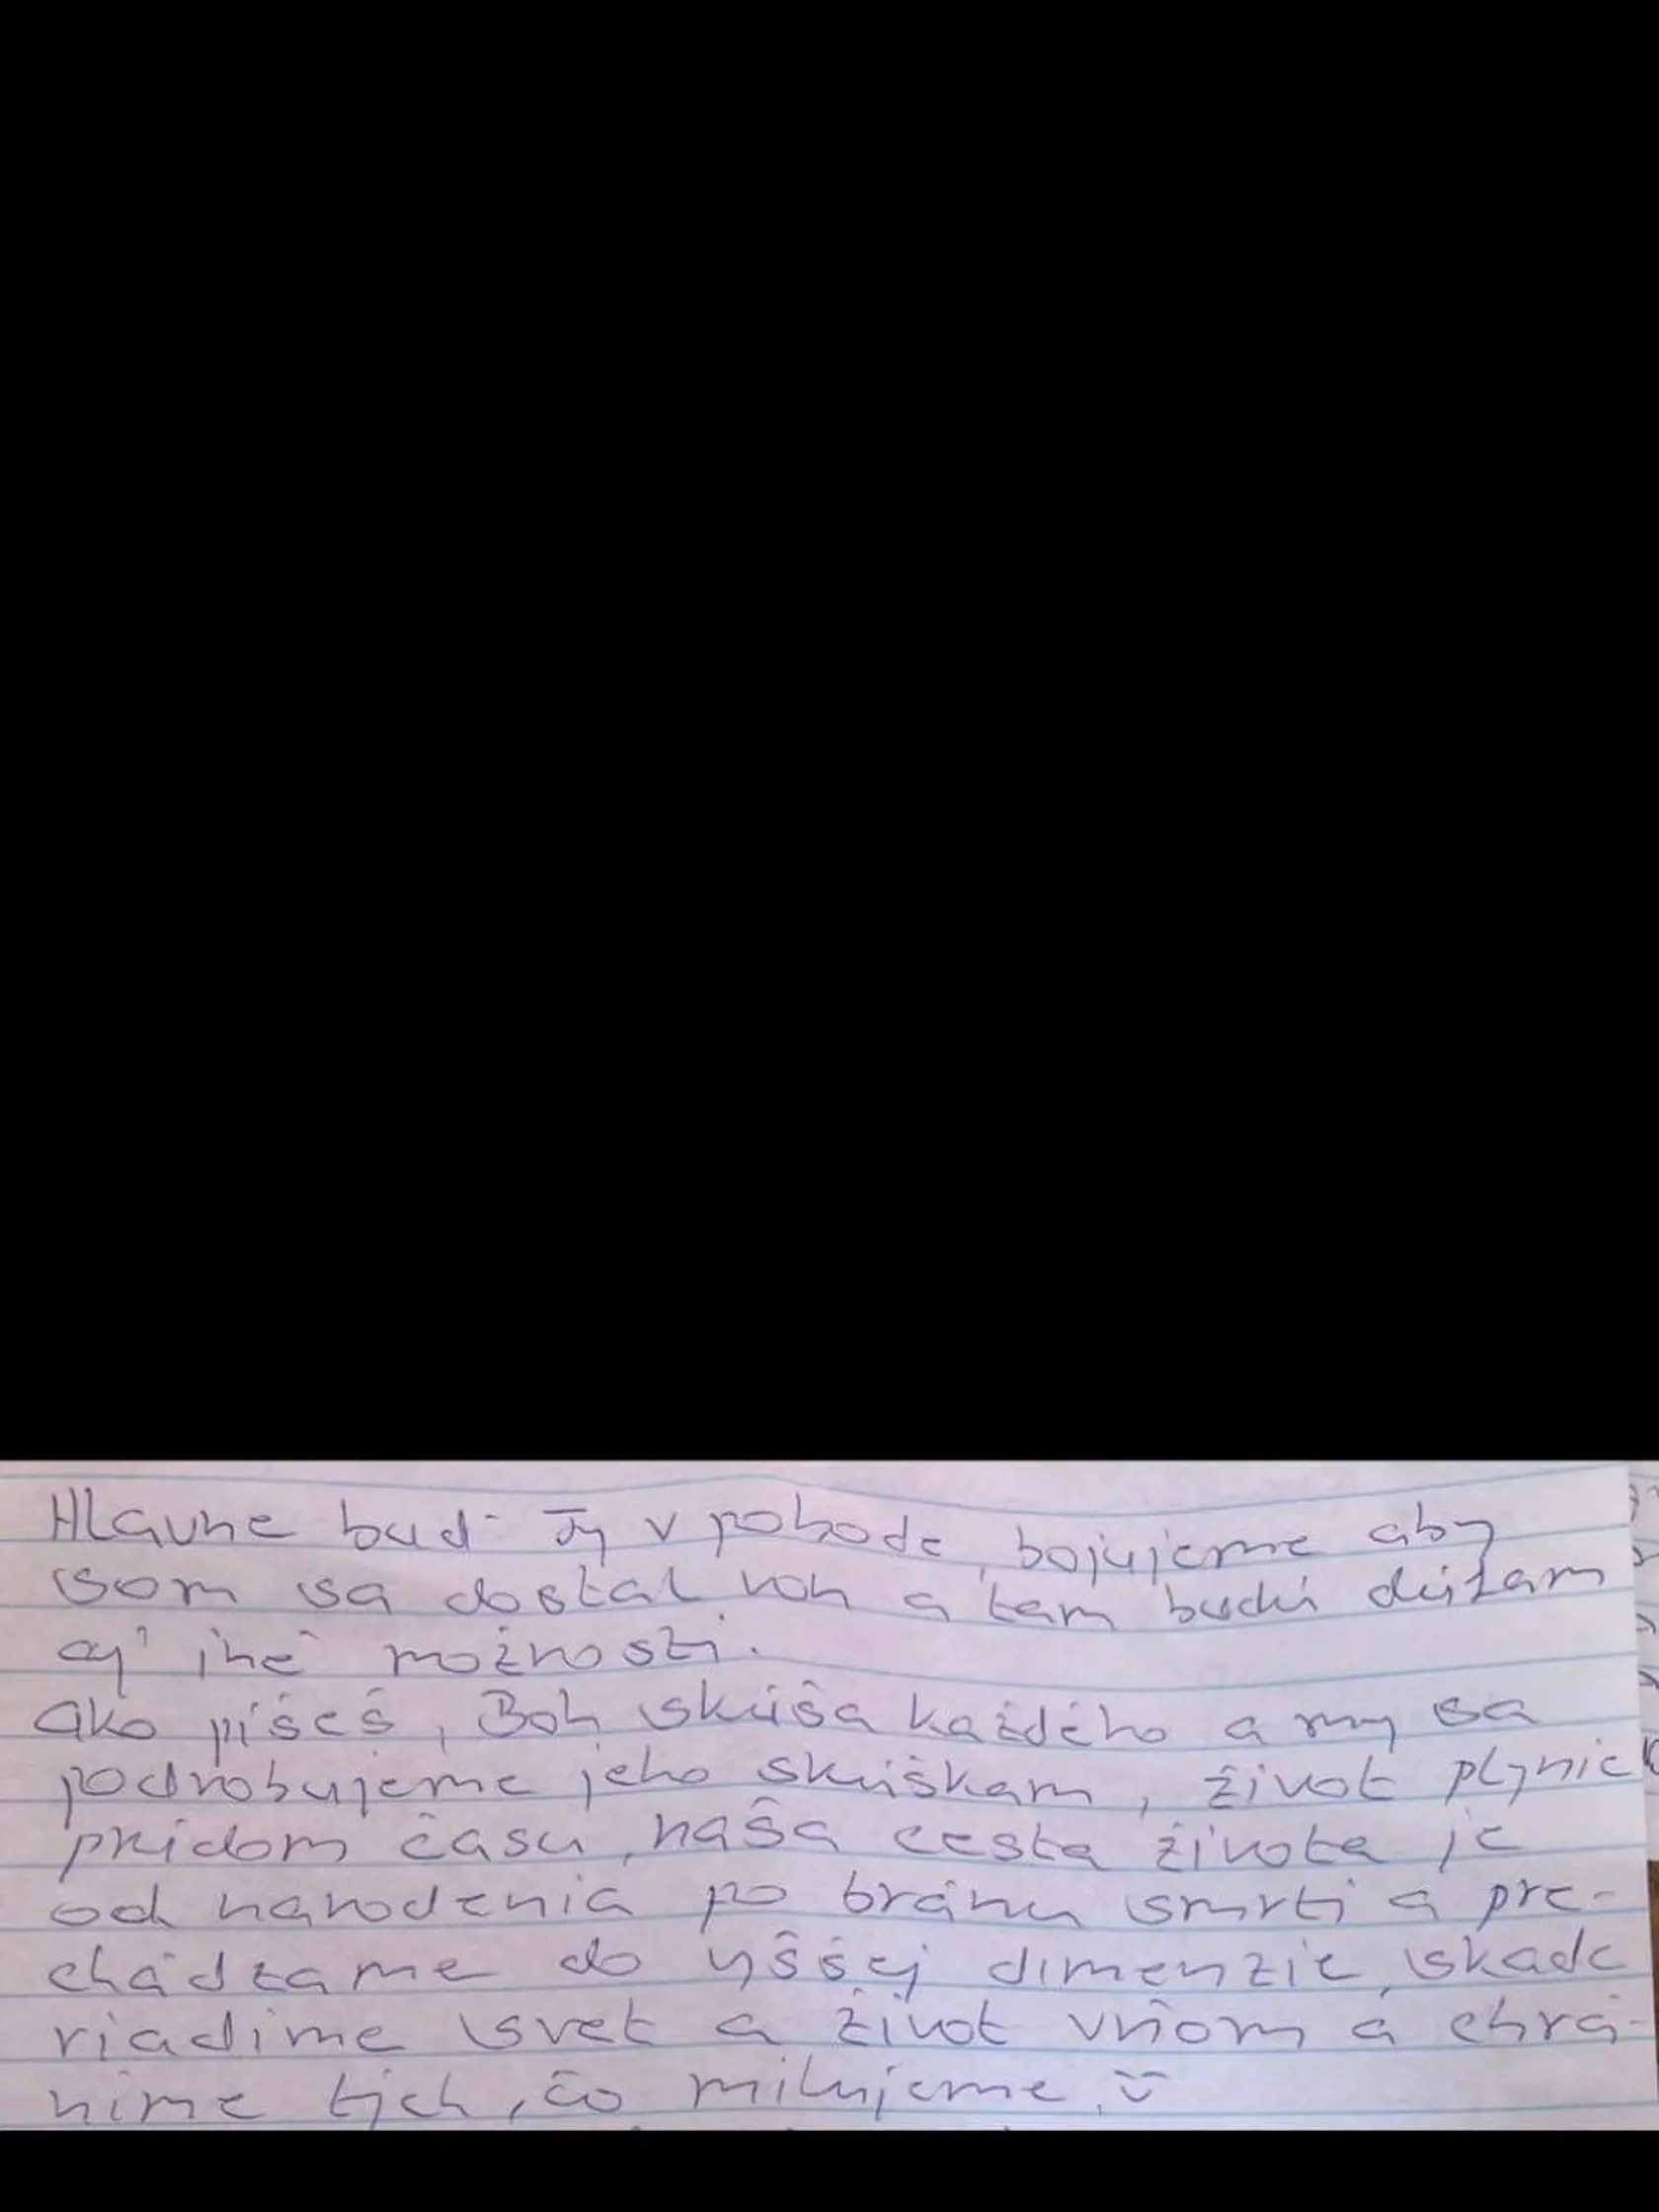 Hlavne buď Ty v pohode, bojujeme aby
som sa dostal von a tam budú dúfam
aj iné možnosti.
Ako píšeš, Boh skúša každého a my sa
podrobujeme jeho skúškam, život plynie
prídom času, naša cesta života je
od narodenia po bránu smrti a pre-
chádzame do yššej dimenzie, skade
riadime svet a život vňom a chrá-
nime tých, čo milujeme. ü